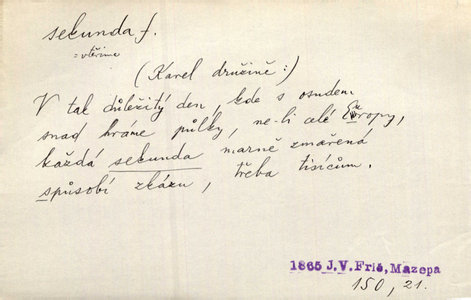 sekunda f.
= vteřina
(Karel družině:)
V tak důležitý den, kde s osudem
snad hráme půlky, ne-li celé Evropy,
každá sekunda marně zmařená
způsobí zkázu, třeba tisícům.
1865 J.V.Frič, Mazepa
150, 21.